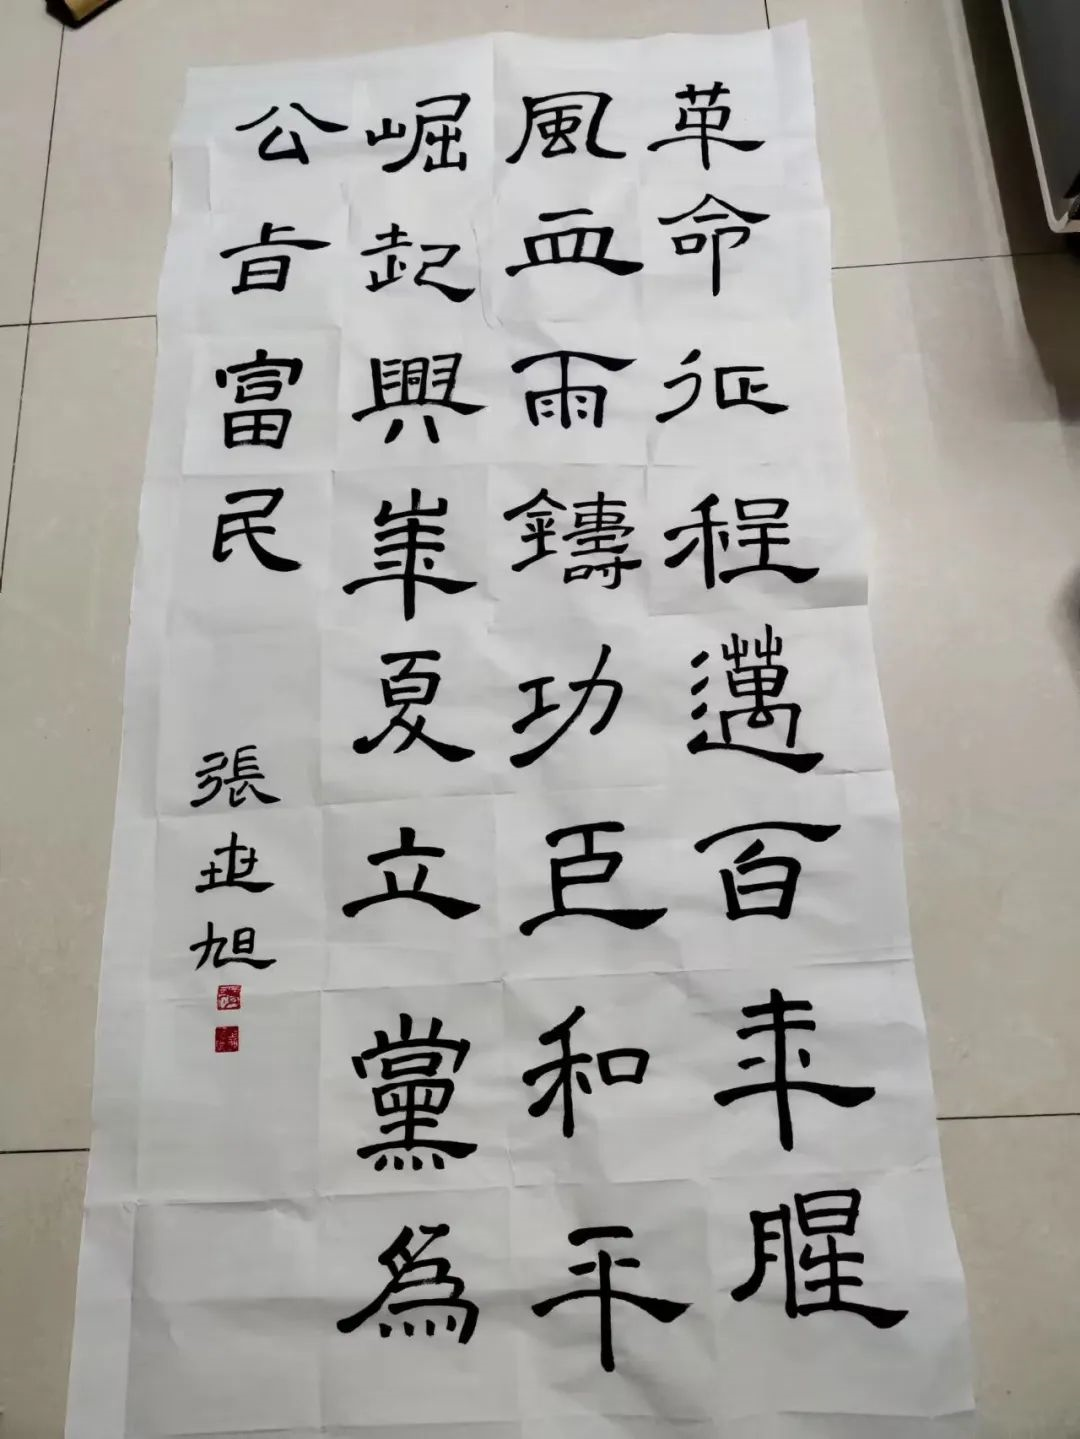 革命征程邁百年腥
風血雨鑄功臣和平
崛起興華夏立黨爲
公旨富民
張 旭